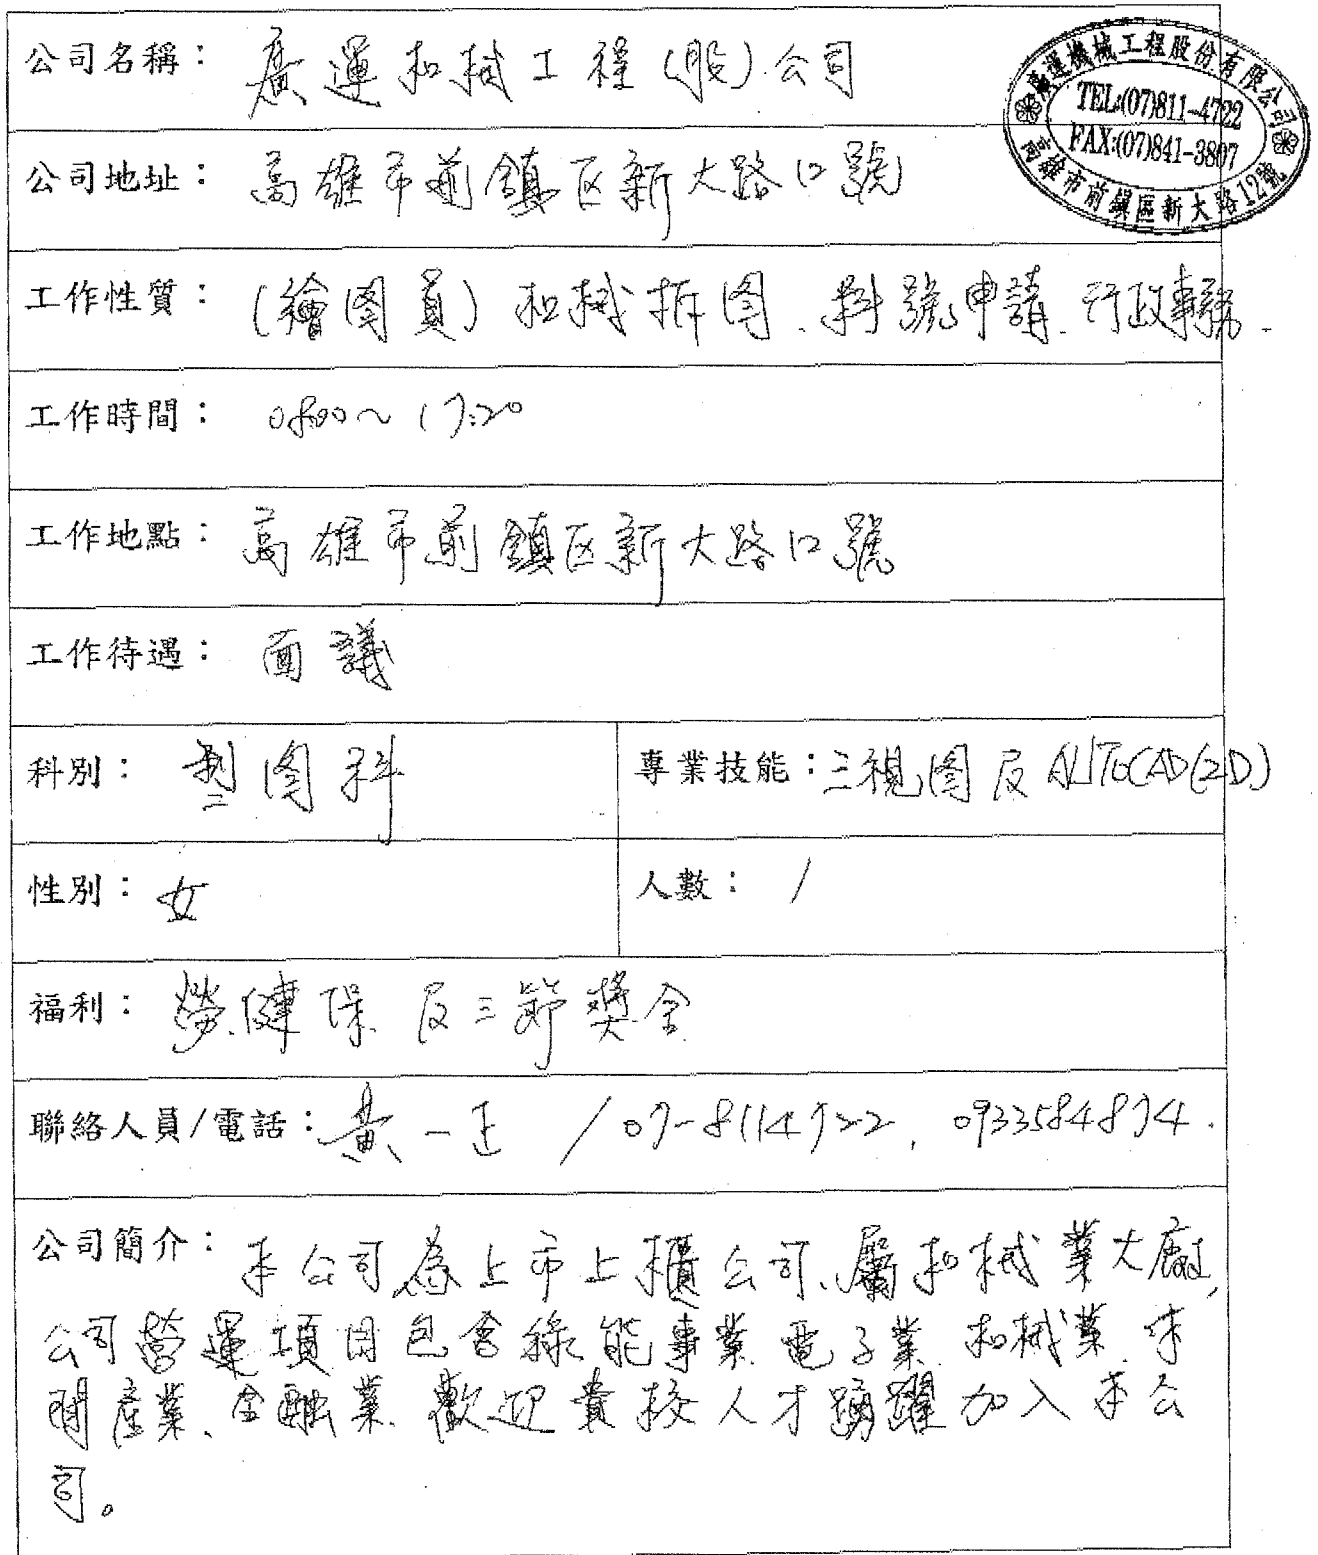 公司名稱： 廣運机械工程(股)公司
廣運機械工程股份有限公司
TEL:(07)811-4722
FAX:(07)841-3807
高雄市前鎮區新大路12號
公司地址： 高雄市前鎮区新大路12號
工作性質： (繪图員) 机械拆图、料號申請、行政事務.
工作時間： 0800～17:20
工作地點： 高雄市前鎮区新大路12號
工作待遇： 面議
科別： 製图科
專業技能：三視图及AUTOCAD(2D)
性別： 女
人數： 1
福利： 勞.健保.及三節獎金
聯絡人員/電話： 黃一正 / 07-8114722, 0933584874.
公司簡介： 本公司為上市上櫃公司、屬机械業大廠,
公司營運項目包含綠能事業、電子業、机械業、休
閒產業、金融業、歡迎貴校人才踴躍加入本公
司。